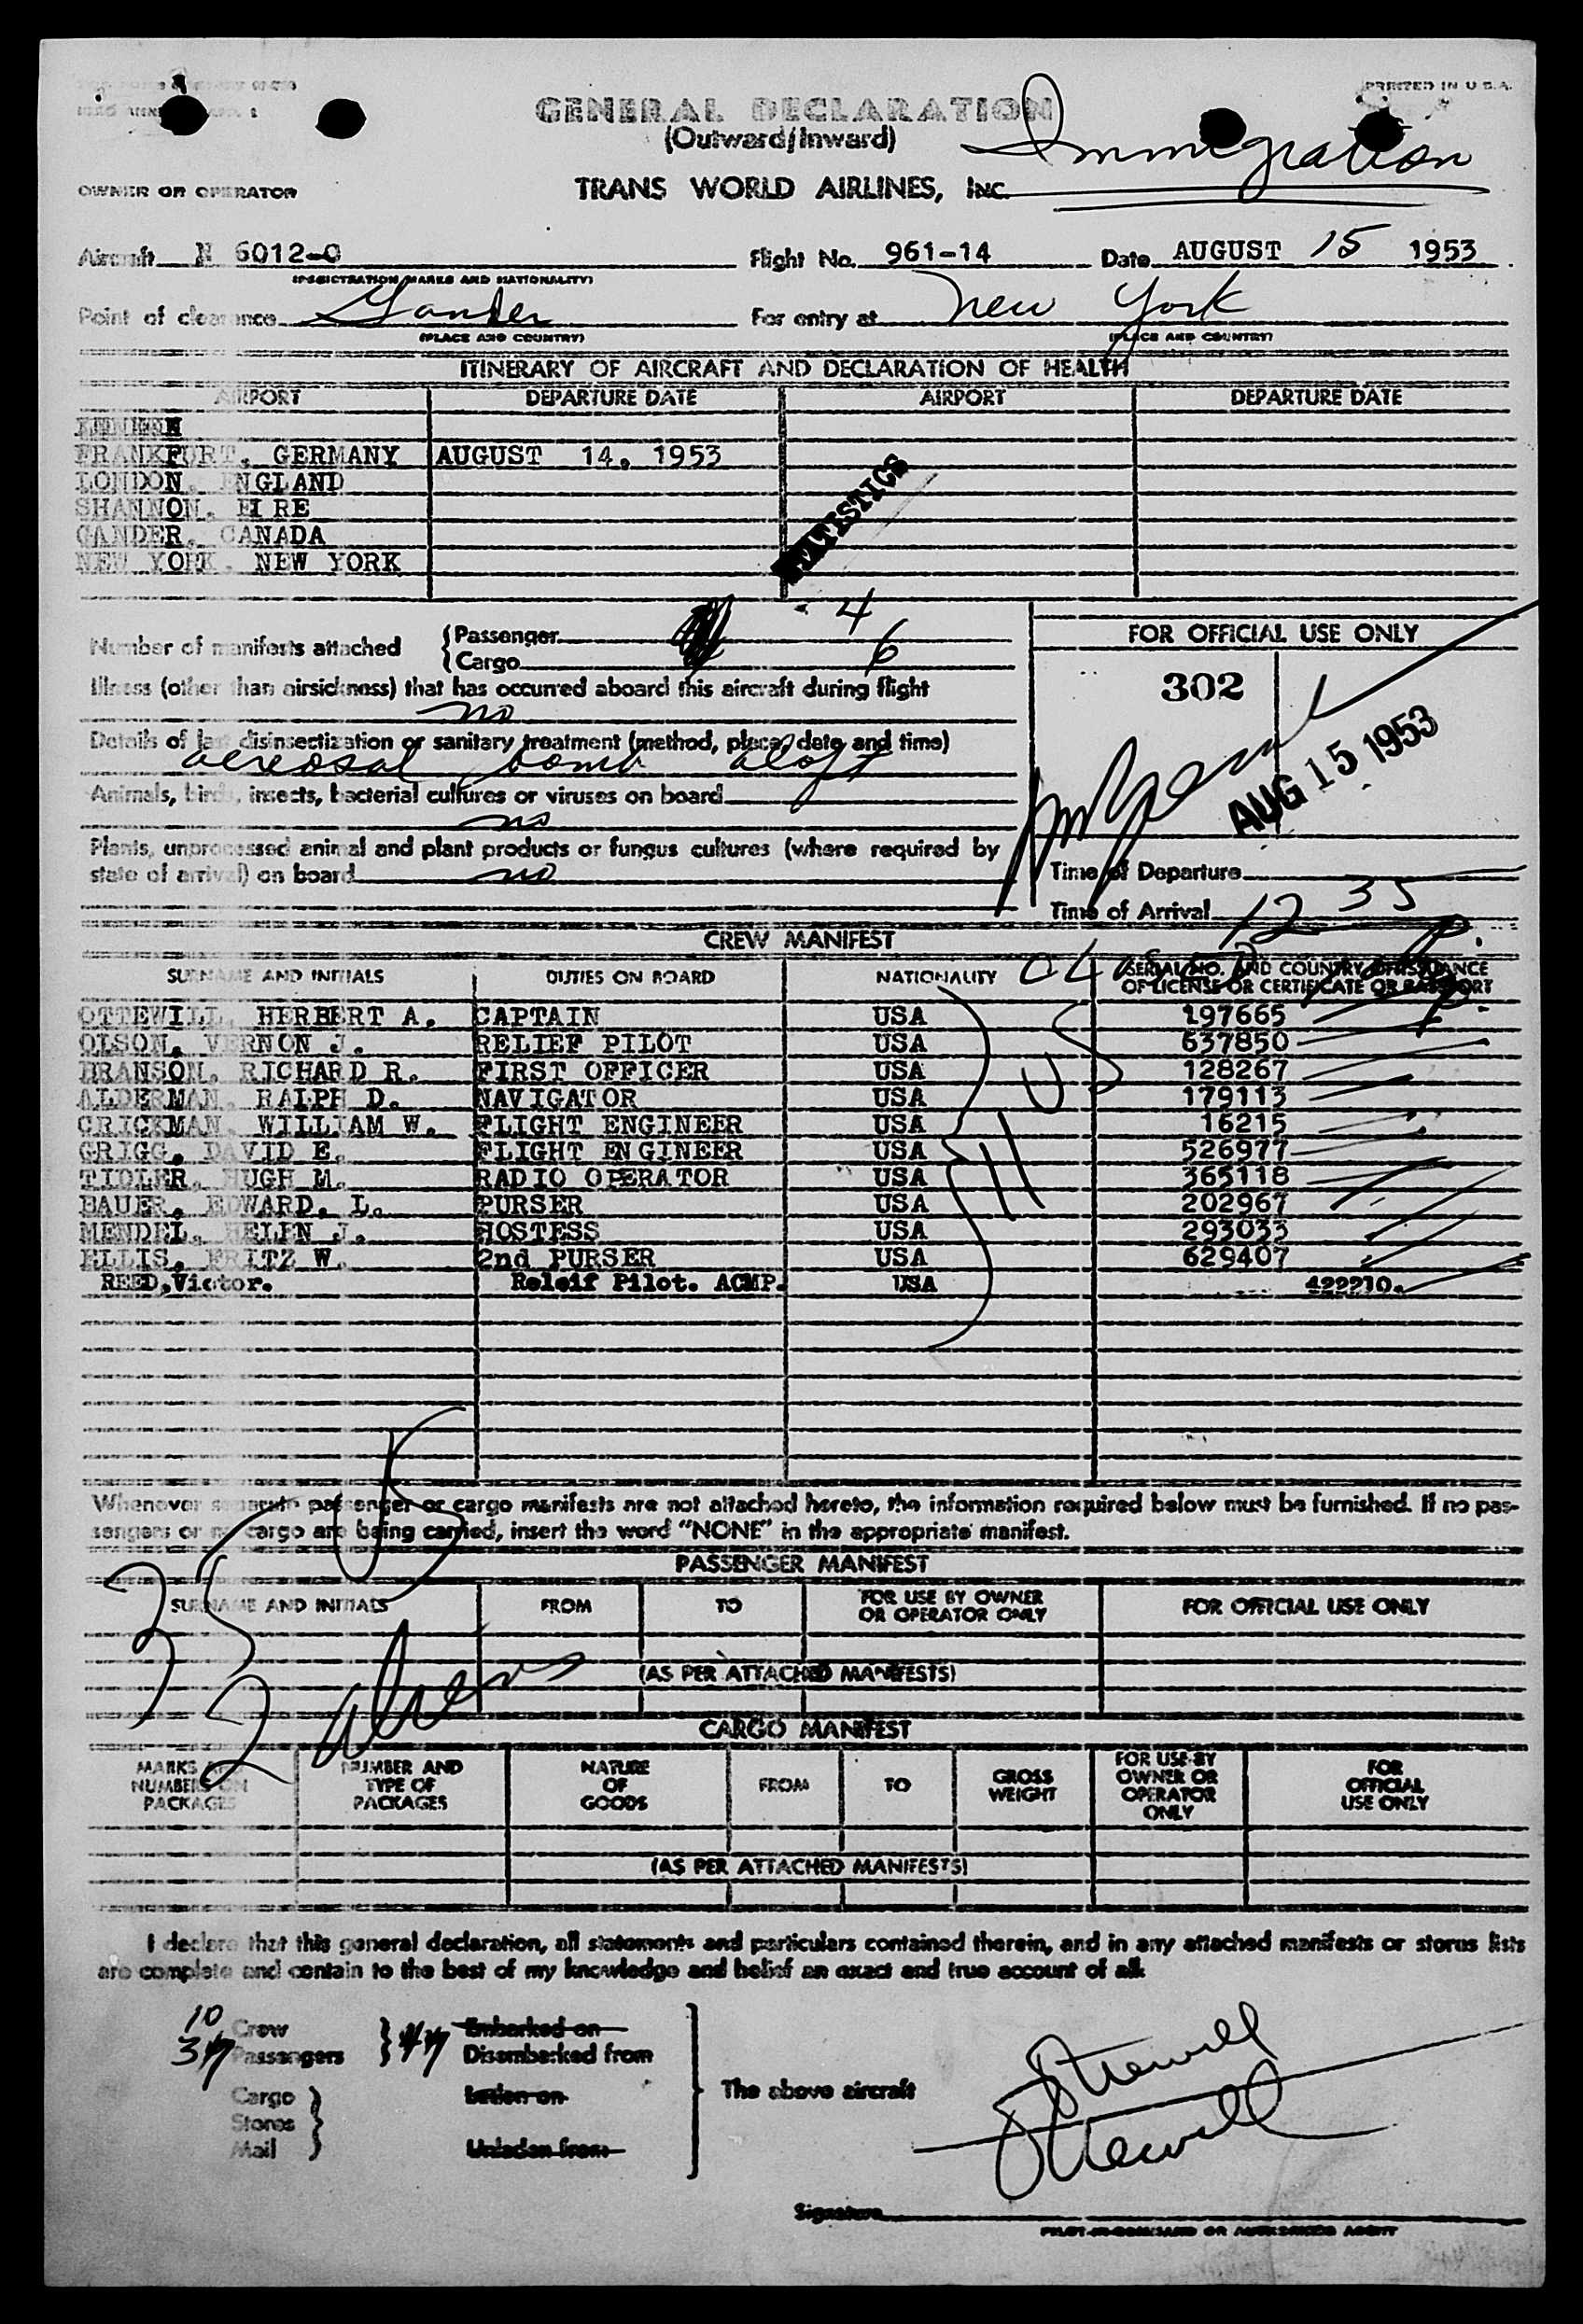 PRINTED IN U S A.
GENERAL DECLARATION
(Outward/Inward)
Immigration
OWNER OR OPERATOR
TRANS WORLD AIRLINES, INC.
Aircraft N 6012-C Flight No. 961-14 Date AUGUST 15 1953
(REGISTRATION MARKS AND NATIONALITY)
Point of clearance Gander For entry at New York
(PLACE AND COUNTRY) (PLACE AND COUNTRY)
ITINERARY OF AIRCRAFT AND DECLARATION OF HEALTH
AIRPORT DEPARTURE DATE AIRPORT DEPARTURE DATE
FRANKFURT, GERMANY AUGUST 14, 1953
LONDON, ENGLAND
SHANNON, EIRE
GANDER, CANADA
NEW YORK, NEW YORK
STATISTICS
Number of manifests attached
Passenger 4
Cargo 6
Illness (other than airsickness) that has occurred aboard this aircraft during flight
no
Details of last disinsectization or sanitary treatment (method, place, date and time)
aereosal bomb aloft
Animals, birds, insects, bacterial cultures or viruses on board
no
Plants, unprocessed animal and plant products or fungus cultures (where required by
state of arrival) on board no
FOR OFFICIAL USE ONLY
302
AUG 15 1953
Time of Departure
Time of Arrival 12 35
CREW MANIFEST
SURNAME AND INITIALS DUTIES ON BOARD NATIONALITY SERIAL NO. AND COUNTRY OF ISSUANCE
OF LICENSE OR CERTIFICATE OR PASSPORT
OTTEWILL, HERBERT A. CAPTAIN USA 197665
OLSON, VERNON J. RELIEF PILOT USA 637850
BRANSON, RICHARD R. FIRST OFFICER USA 128267
ALDERMAN, RALPH D. NAVIGATOR USA 179113
CRICKMAN, WILLIAM W. FLIGHT ENGINEER USA 16215
GRIGG, DAVID E. FLIGHT ENGINEER USA 526977
TIDLER, HUGH M. RADIO OPERATOR USA 365118
BAUER, EDWARD, L. PURSER USA 202967
MENDEL, HELEN J. HOSTESS USA 293033
ELLIS, FRITZ W. 2nd PURSER USA 629407
REED,Victor. Releif Pilot. ACMP. USA 422210.
11 US
Whenever separate passenger or cargo manifests are not attached hereto, the information required below must be furnished. If no pas-
sengers or no cargo are being carried, insert the word "NONE" in the appropriate manifest.
PASSENGER MANIFEST
SURNAME AND INITIALS FROM TO FOR USE BY OWNER
OR OPERATOR ONLY FOR OFFICIAL USE ONLY
(AS PER ATTACHED MANIFESTS)
35 US
2 aliens
CARGO MANIFEST
MARKS AND
NUMBERS ON
PACKAGES
NUMBER AND
TYPE OF
PACKAGES
NATURE
OF
GOODS
FROM
TO
GROSS
WEIGHT
FOR USE BY
OWNER OR
OPERATOR
ONLY
FOR
OFFICIAL
USE ONLY
(AS PER ATTACHED MANIFESTS)
I declare that this general declaration, all statements and particulars contained therein, and in any attached manifests or stores lists
are complete and contain to the best of my knowledge and belief an exact and true account of all:
10 Crew Embarked on
Passengers Disembarked from
Cargo Laden on
Stores
Mail Unladen from
The above aircraft
Ottewill
Ottewill
Signature
PILOT-IN-COMMAND OR AUTHORIZED AGENT